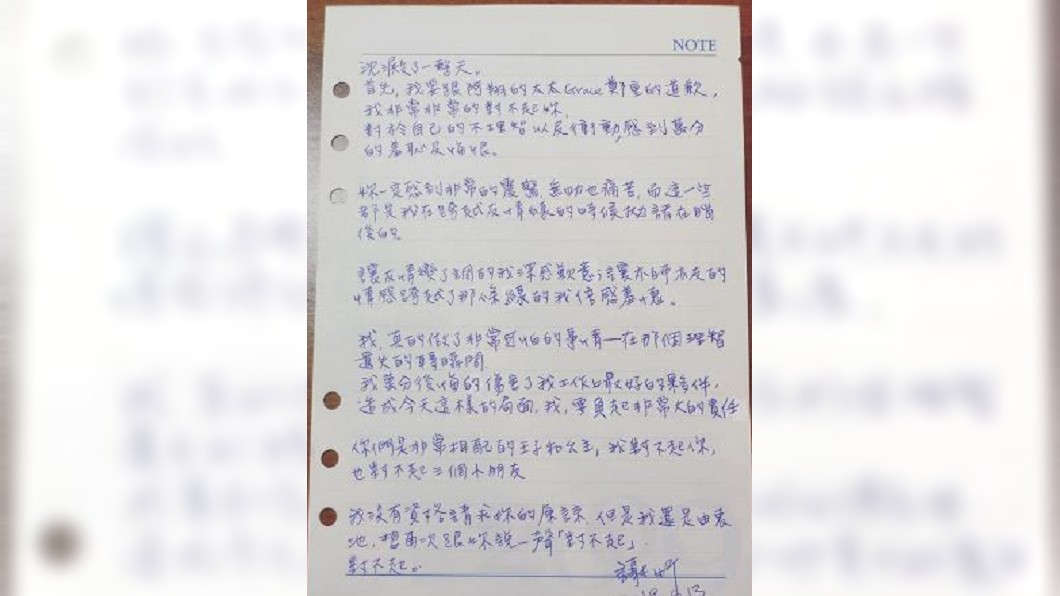 NOTE
沈澱了一整天。
首先,我要跟阿翔的太太Grace鄭重的道歉,
我非常非常的對不起妳,
對於自己的不理智以及衝動,感到萬分
的羞恥及悔恨。
妳一定感到非常的震驚、無助也痛苦,而這一些
都是我在跨越友情線的時候拋諸在腦
後的。
讓友情變了調的我深感歉意;讓亦師亦友的
情感跨越了那條線的我倍感羞愧。
我,真的做了非常可怕的事情—在那個理智
喪失的瞬間
我萬分後悔的傷害了我工作上最好的夥伴,
造成今天這樣的局面,我,要負起非常大的責任
你們是非常相配的王子和公主,我對不起你,
也對不起三個小朋友
我沒有資格請求妳的原諒,但是我還是由衷
地,想再次跟妳說一聲「對不起」.
對不起。
謝忻